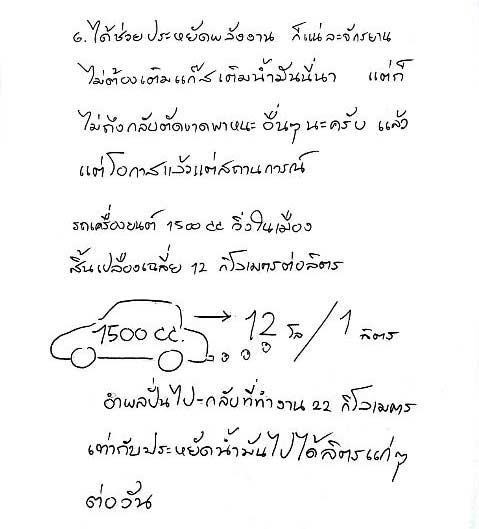 ๖. ได้ช่วยประหยัดพลังงาน ก็แน่ละจักรยาน
ไม่ต้องเติมแก๊สเติมน้ำมันนี่นา แต่ก็
ไม่ถึงกลับตัดขาดพาหนะอื่นๆนะครับ แล้ว
แต่โอกาสแล้วแต่สถานการณ์
รถเครื่องยนต์ 1500 cc วิ่งในเมือง
สิ้นเปลืองเฉลี่ย 12 กิโลเมตรต่อลิตร
1500 cc. → 12 โล / 1 ลิตร
อำพลปั่นไป-กลับที่ทำงาน 22 กิโลเมตร
เท่ากับประหยัดน้ำมันไปได้ลิตรแก่ๆ
ต่อวัน